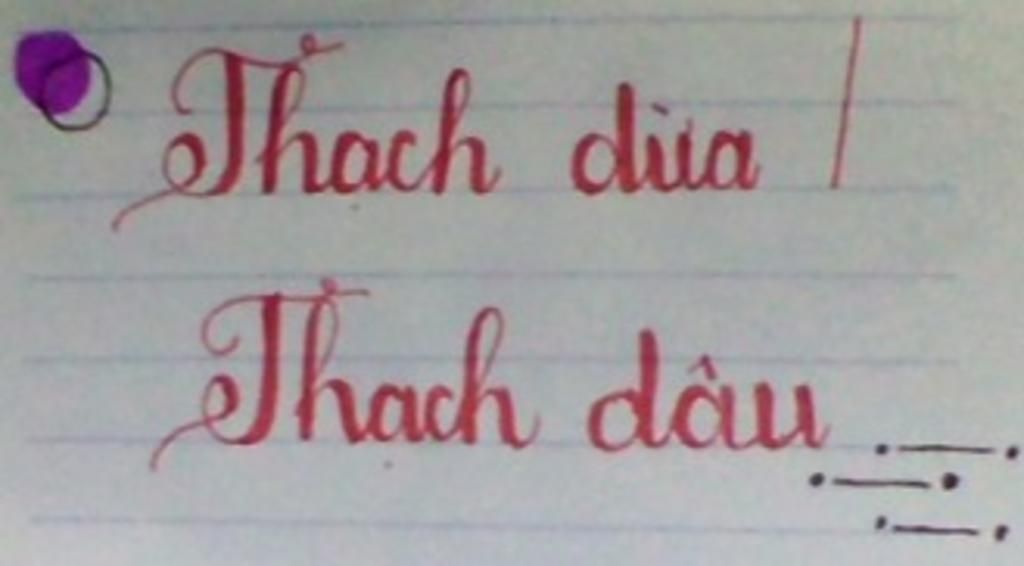 Thạch dừa /
Thạch dâu